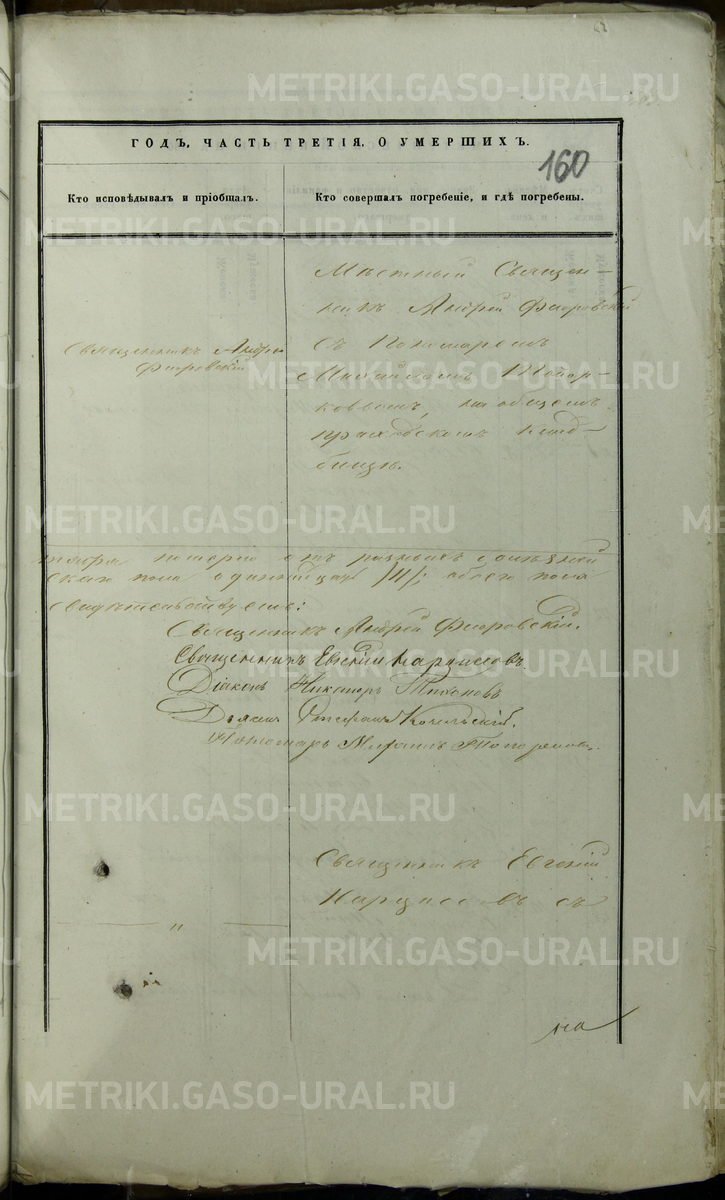 METRIKI.GASO-URAL.RU
ГОДЪ, ЧАСТЬ ТРЕТІЯ, О УМЕРШИХЪ.
160
Кто исповѣдывалъ и пріобщалъ.
Кто совершалъ погребеніе, и гдѣ погребены.
Священникъ Андрей
Флоровскій
Мѣстный Священ-
никъ Андрей Флоровскій
съ Пономаремъ
Михаиломъ Топор-
ковымъ, на общемъ
приходскомъ клад-
бищѣ.
ского пола одинадцать /11/; обоего пола
свидѣтельствуемъ:
Священникъ Андрей Флоровскій.
Священникъ Евгеній Нарциссовъ
Діаконъ Никаноръ Тихоновъ
Дьяконъ Стефанъ
Пономарь Михаилъ Топорковъ.
Священникъ Евгеній
Нарциссовъ съ
"
на